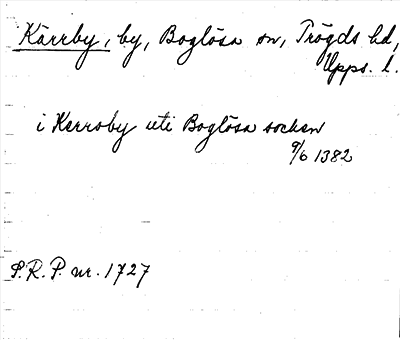 Kärrby, by, Boglösa sn, Trögds hd,
Upps. l.
i Kerroby uti Boglösa socken
9/6 1382
S.R.P. nr. 1727